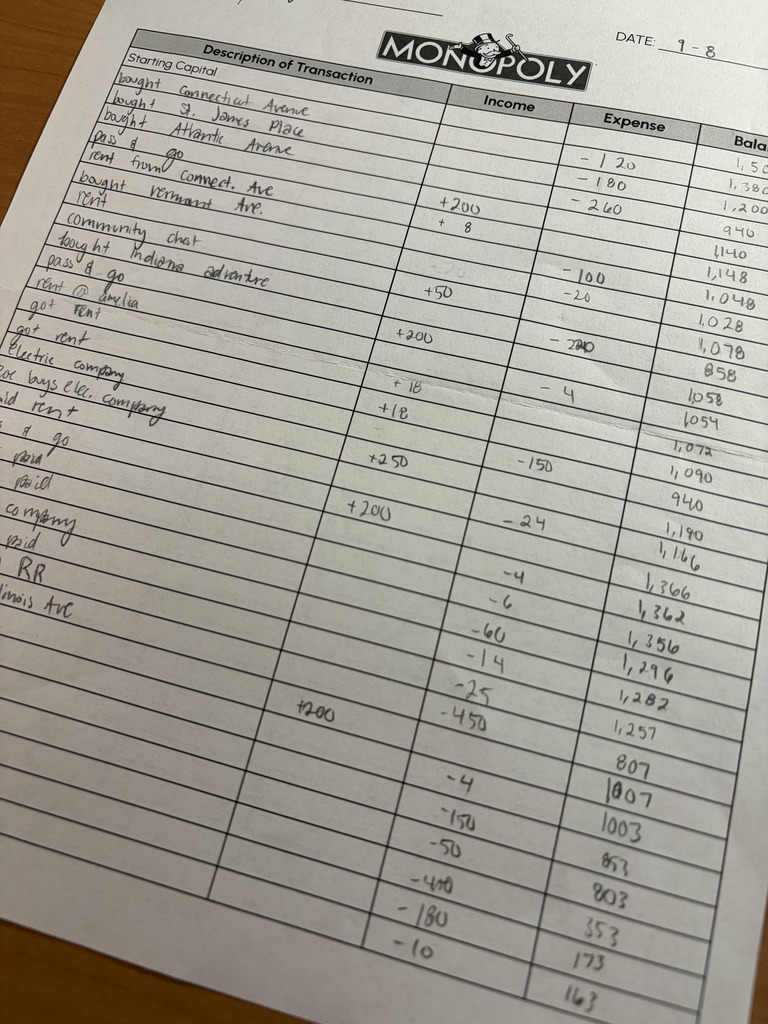 DATE: 9-8
MONOPOLY
Description of Transaction Income Expense Bala
Starting Capital 1,50
bought Connecticut Avenue -120 1,380
bought St. James Place -180 1,200
bought Atlantic Avenue -260 940
pass & go +200 1,140
rent from connect. Ave + 8 1,148
bought vermont Ave. -100 1,048
rent -20 1,028
community chat +50 1,078
bought Indiana adventure -220 858
pass & go +200 1,058
rent @ amelia - 4 1,054
got rent + 18 1,072
got rent +18 1,090
electric company -150 940
buys elec. company +250 1,190
id rent -24 1,166
& go +200 1,366
paid -4 1,362
paid -6 1,356
company -60 1,296
paid -14 1,282
RR -25 1,257
linois Ave -450 807
+200 1007
-4 1003
-150 853
-50 803
353
-180 173
-10 163